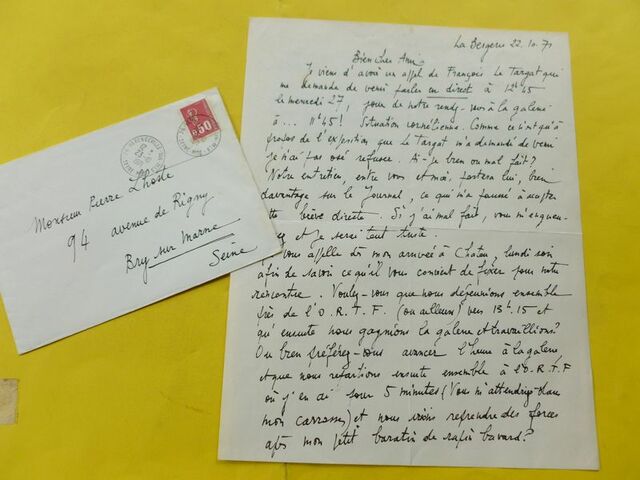 La Bergerie 22.10.71
Bien cher Ami,
Je viens d'avoir un appel de François Le Targat qui
me demande de venir parler en direct à 12h45
le mercredi 27, jour de notre rendez-vous à la galerie
à... 11h45! Situation cornélienne. Comme ce n'est qu'à
propos de l'exposition que Le Targat m'a demandé de venir
je n'ai pas osé refuser. Ai-je bien ou mal fait?
Notre entretien, entre vous et moi, portera lui, bien
davantage sur le Journal, ce qui m'a poussé à accepter
cette brève directe. Si j'ai mal fait, vous m'engueu-
lez et je serai tout triste.
vous appelle dès mon arrivée à Chatou, lundi soir
afin de savoir ce qu'il vous convient de fixer pour notre
rencontre. Voulez-vous que nous déjeunions ensemble
près de l'O.R.T.F. (ou ailleurs) vers 13h.15 et
qu'ensuite nous gagnions la galerie et travaillions?
Ou bien préférez-vous avancer l'heure à la galerie,
et que nous repartions ensuite ensemble à l'O.R.T.F
où j'en ai pour 5 minutes (Vous m'attendriez dans
mon carrosse) et nous irions reprendre des forces
après mon petit baratin de rapin bavard?
Monsieur Pierre Lhoste
94 avenue de Rigny
Bry sur Marne
Seine
0.50